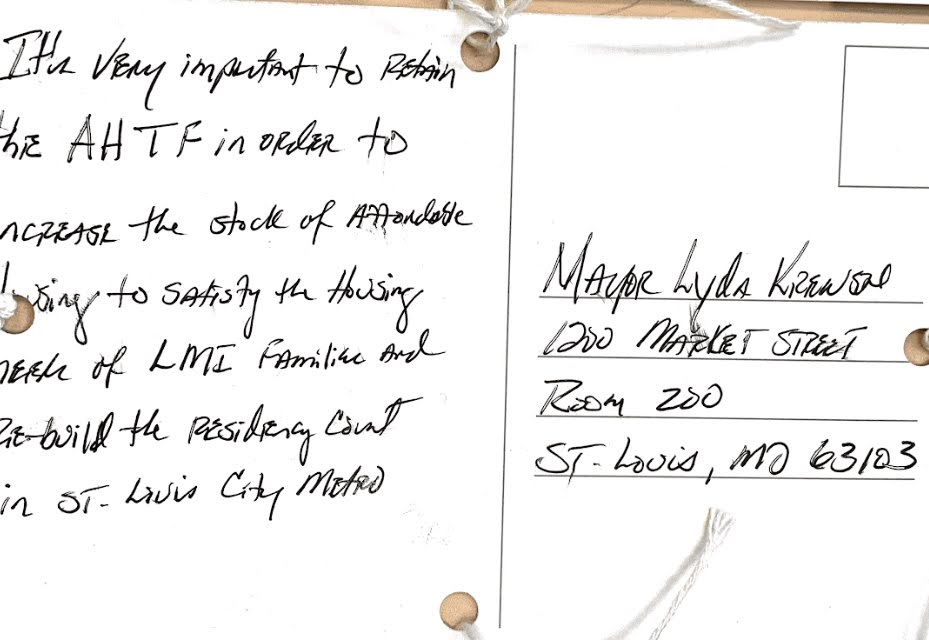 It's very important to Retain
the AHTF in order to
increase the stock of Affordable
housing to satisfy the Housing
needs of LMI Families and
Re-build the Residency Count
in ST. Louis City Metro
Mayor Lyda Krewson
1200 MARKET STREET
Room 200
ST. Louis, MO 63103